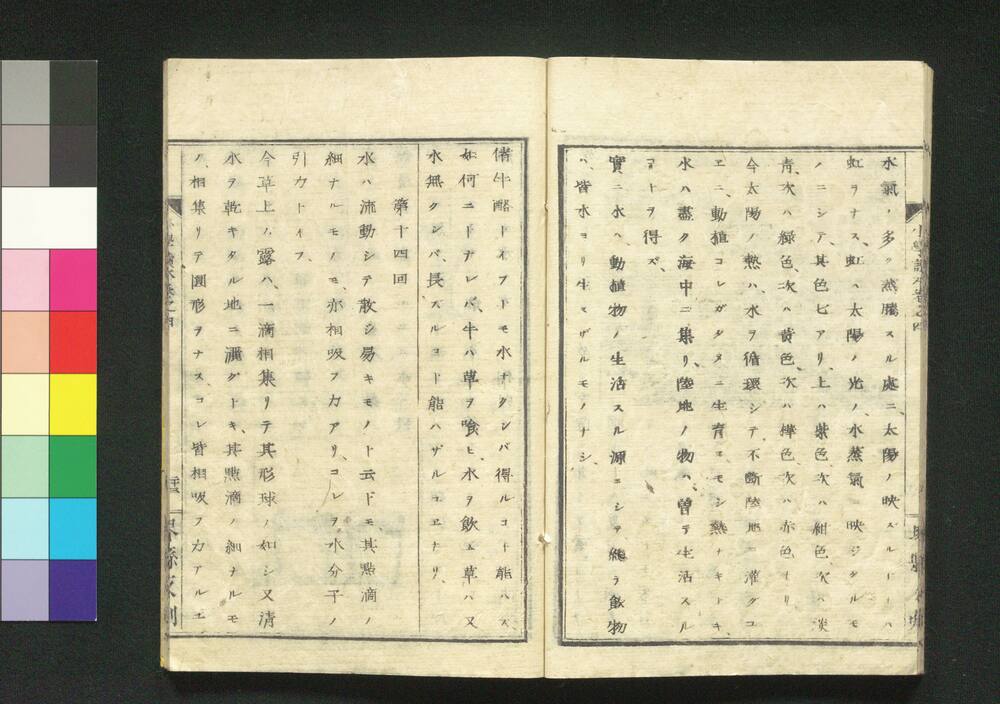 水氣ノ多ク蒸騰スル處ニ、太陽ノ映ズルトキハ
虹ヲナス、虹ハ太陽ノ光ノ、水蒸氣ニ映ジタルモ
ノニシテ、其色七アリ、上ハ紫色、次ハ紺色、次ハ淡
靑、次ハ緑色、次ハ黄色、次ハ樺色、次ハ赤色ナリ、
今太陽ノ熱ハ、水ヲ循環シテ、不斷陸地ニ灌グユ
エニ、動植コレガタメニ生育ス、モシ熱ナキトキ、
水ハ盡ク海中ニ集リ、陸地ノ物ハ、曽テ生活スル
コトヲ得ズ、
實ニ水ハ、動植物ノ生活スル源ニシテ、總テ飲物
ハ、皆水ヨリ生ゼザルモノナシ、
偖牛酪トイフトモ水ナクンバ得ルコト能ハズ、
如何ニトナレバ、牛ハ草ヲ喰ヒ、水ヲ飲ム、草ハ又
水無クンバ、長ズルコト能ハザルユエナリ、
第十四回
水ハ流動シテ散ジ易キモノト云ドモ其點滴ノ
細ナルモノモ、亦相吸フ力アリ、コレヲ水分子ノ
引力トイフ、
今草上ノ露ハ、一滴相集リテ其形球ノ如シ又清
水ヲ乾キタル地ニ灑グトキ、其點滴ノ細ナルモ
ノ、相集リテ圓形ヲナス、コレ皆相吸フ力アルエ
小學讀本卷之四